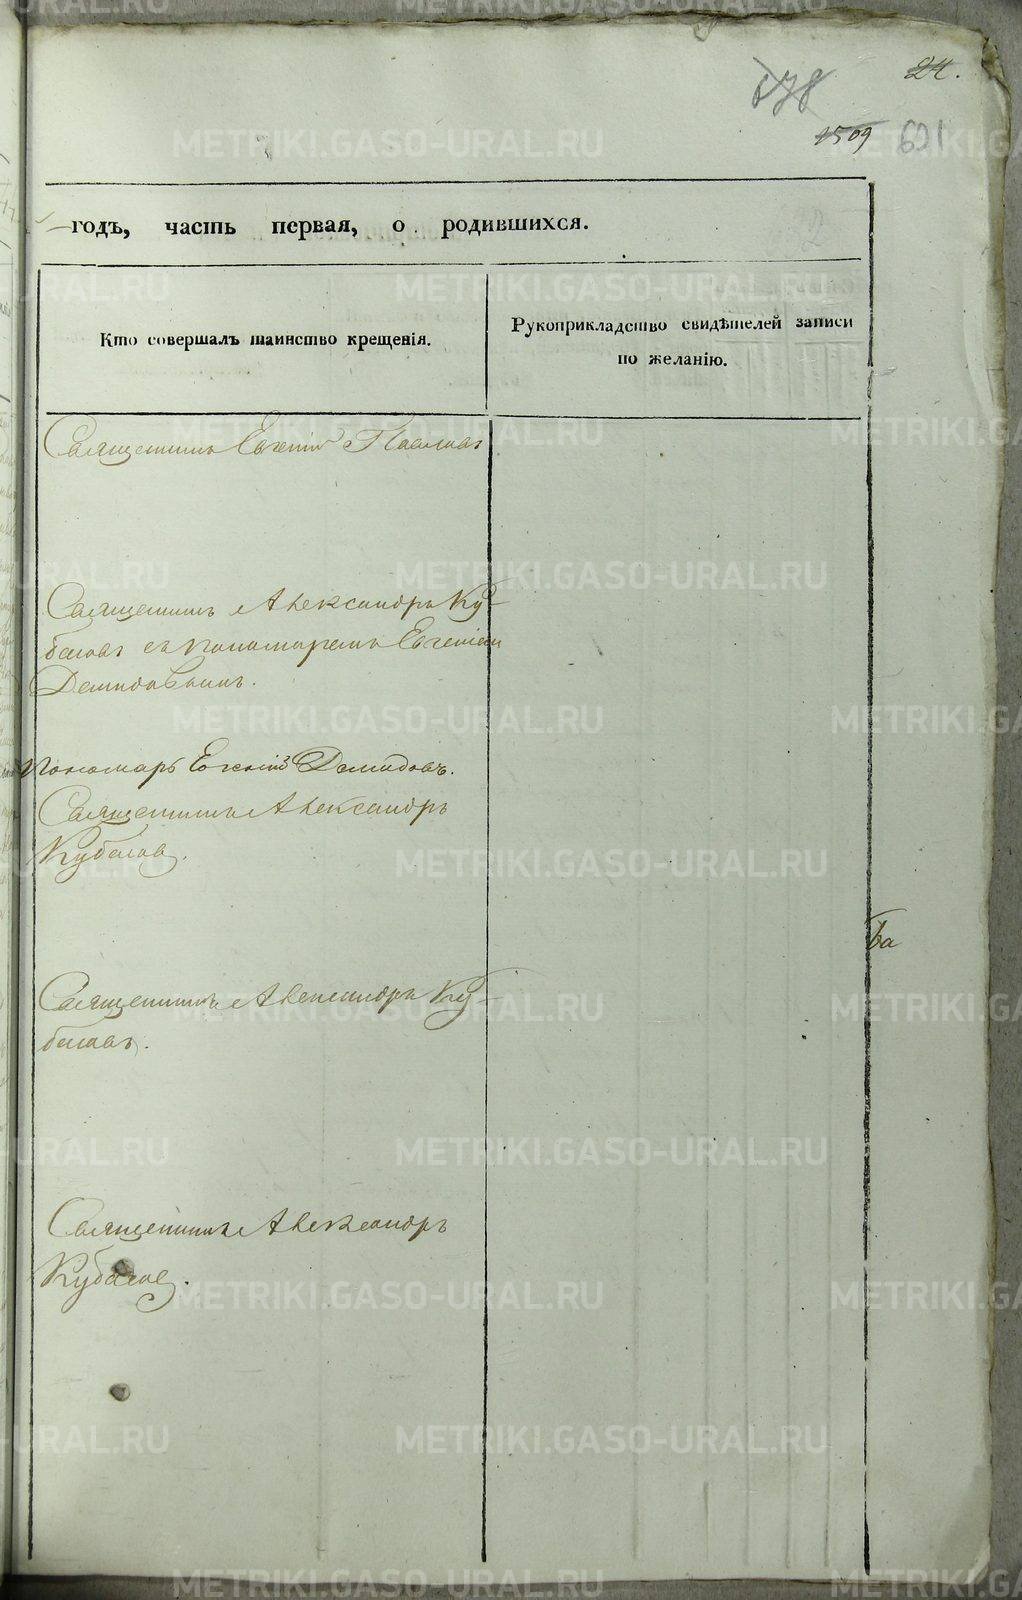 24.
678
1509 691
годъ, часть первая, о родившихся.
Кто совершалъ таинство крещенія.
Рукоприкладство свидѣтелей записи
по желанію.
Священникъ Евгеній
Священникъ Александръ Ку-
баловъ съ пономаремъ Евгеніем
Демидовымъ.
Пономарь Евгеній Демидовъ.
Священникъ Александръ
Кубаловъ.
Священникъ Александръ Ку-
баловъ.
Священникъ Александръ
Кубаловъ.
METRIKI.GASO-URAL.RU